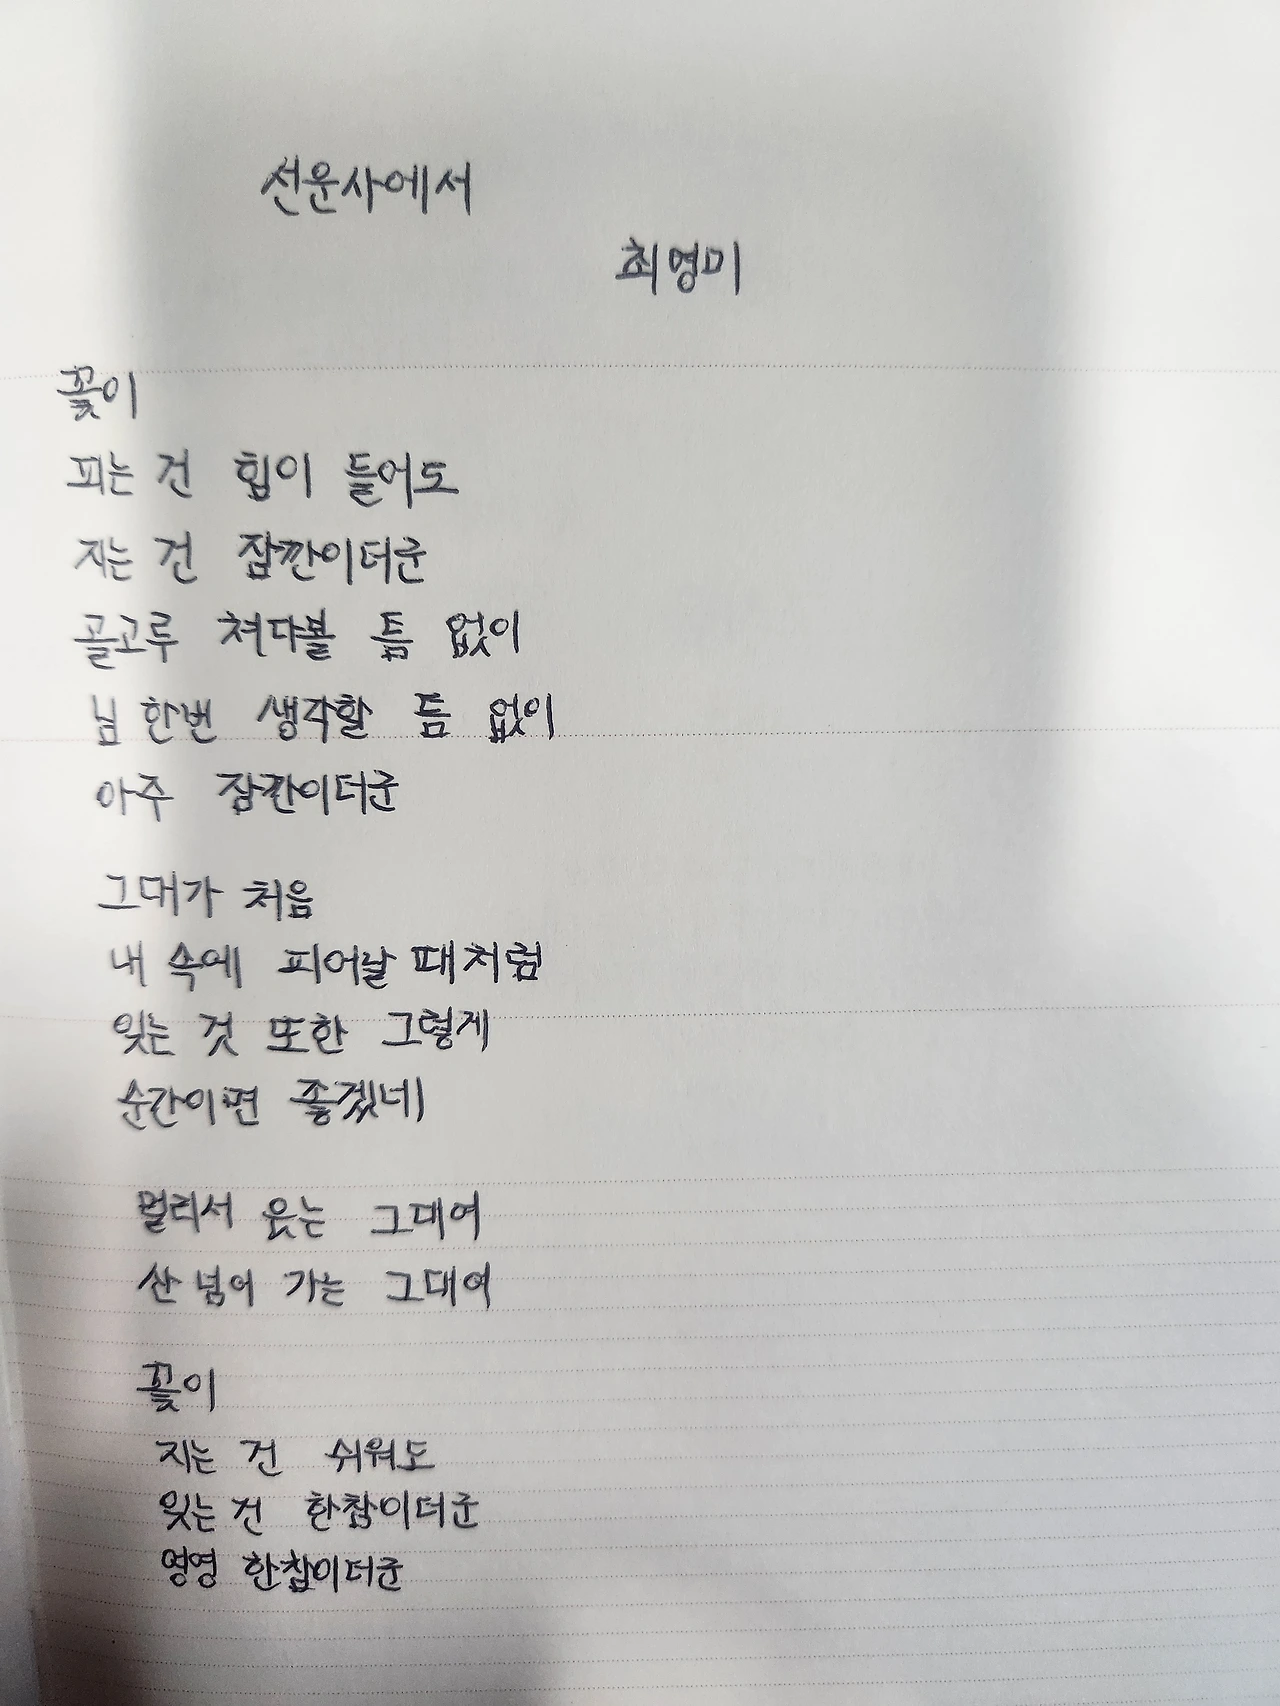 선운사에서
최영미
꽃이
피는 건 힘이 들어도
지는 건 잠깐이더군
골고루 쳐다볼 틈 없이
님 한번 생각할 틈 없이
아주 잠깐이더군
그대가 처음
내 속에 피어날 때처럼
잊는 것 또한 그렇게
순간이면 좋겠네
멀리서 웃는 그대여
산 넘어 가는 그대여
꽃이
지는 건 쉬워도
잊는 건 한참이더군
영영 한참이더군